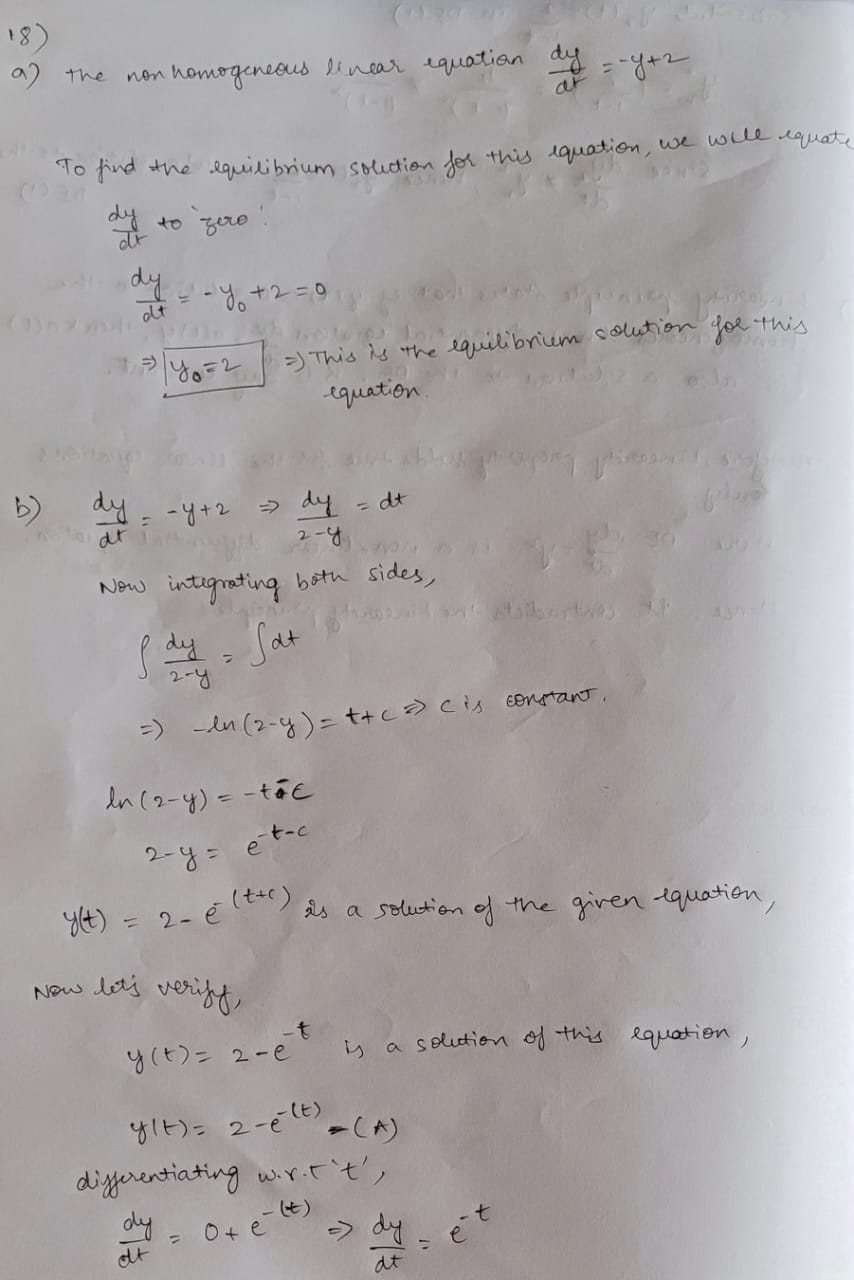 18)
a) The non homogeneous linear equation dy/dt = -y+2
To find the equilibrium solution for this equation, we will equate
dy/dt to 'zero'.
dy/dt = -y₀ + 2 = 0
⇒ y₀ = 2 ⇒ This is the equilibrium solution for this
equation.
b) dy/dt = -y+2 ⇒ dy/2-y = dt
Now integrating both sides,
∫ dy/2-y = ∫dt
⇒ -ln(2-y) = t+c ⇒ c is constant.
ln(2-y) = -t-c
2-y = e^-t-c
y(t) = 2-e^-(t+c) is a solution of the given equation,
Now let's verify,
y(t) = 2-e^-t is a solution of this equation,
y(t) = 2-e^-(t) -(A)
differentiating w.r.t 't',
dy/dt = 0+e^-(t) ⇒ dy/dt = e^-t